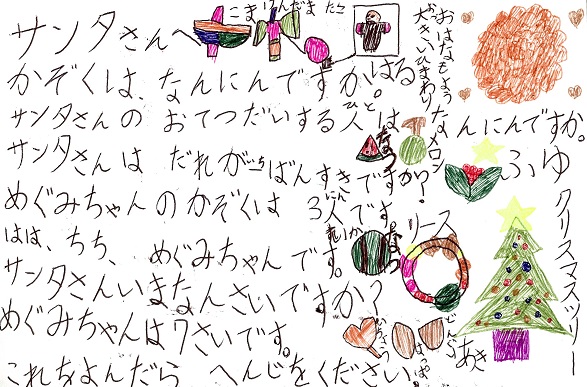 サンタさんへ
こま けんだま たこ
かぞくは、なんにんですか。
はる
サンタさんの おてつだいする人は なんにんですか。
ひと
サンタさんは だれが いちばんすきですか?
めぐみちゃんのかぞくは 3人です。
にん
はは、ちち、めぐみちゃんです。
サンタさんいまなんさいですか?
めぐみちゃんは7さいです。
これをよんだら へんじをください
大きいひまわり
メロン
なつ
ふゆ
リース
クリスマスツリー
あき